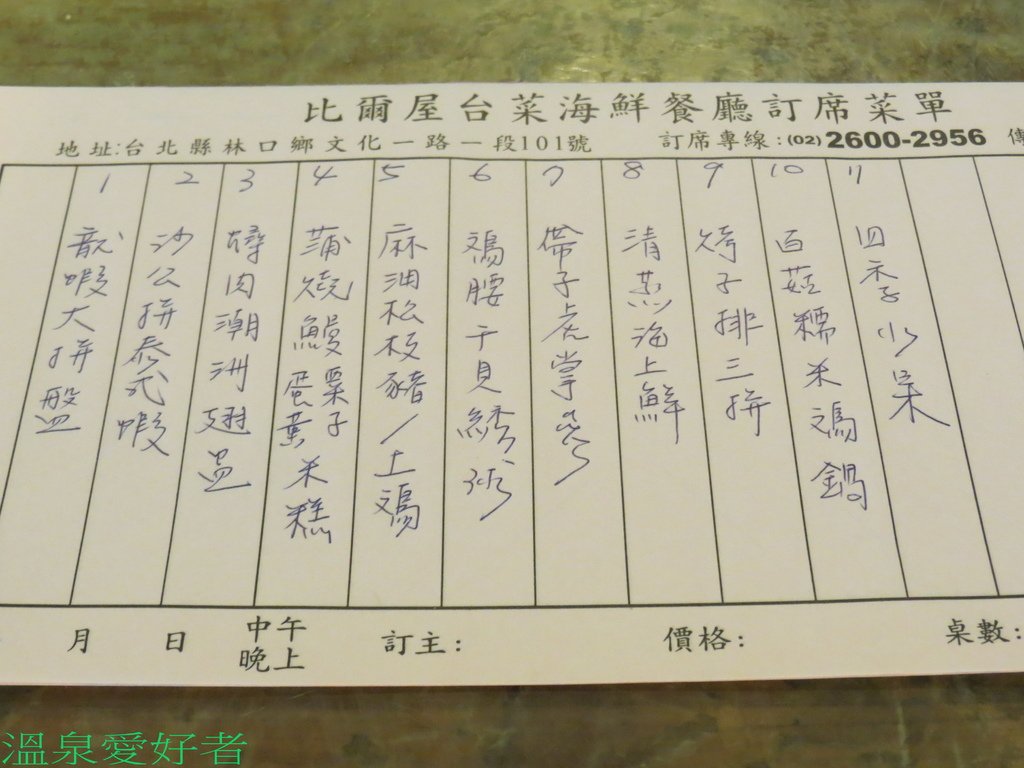 比爾屋台菜海鮮餐廳訂席菜單
地址:台北縣林口鄉文化一路一段101號
訂席專線:(02)2600-2956 傳
1 龍蝦大拼盤
2 沙公拼泰式蝦
3 燖肉潮洲翅盅
4 蒲燒鰻栗子蛋黃米糕
5 麻油松板豬/土鷄
6 鷄腰干貝綉球
7 帶子虎掌
8 清蒸海上鮮
9 子排三拼
10 百菇糯米鷄鍋
11 四季水果
月 日 中午 晚上 訂主: 價格: 桌數:
溫泉愛好者